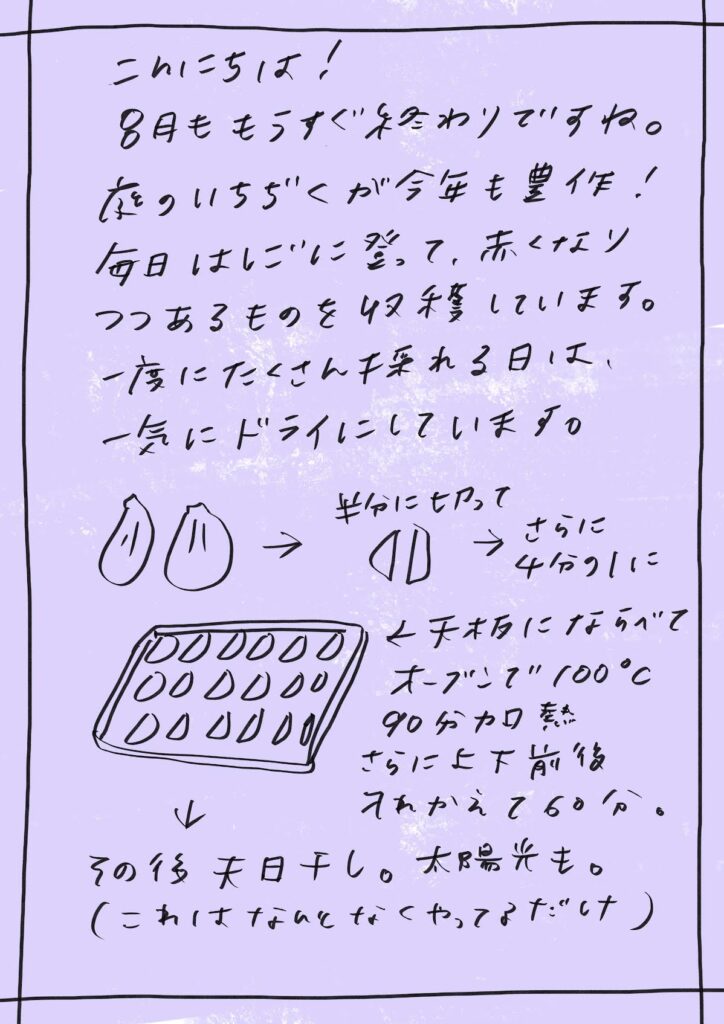 こんにちは！
8月ももうすぐ終わりですね。
庭のいちぢくが今年も豊作！
毎日はしごに登って、赤くなり
つつあるものを収穫しています。
一度にたくさん採れる日は、
一気にドライにしています。
半分に切って
さらに
4分の1に
←天板にならべて
オーブンで100℃
90分加熱
さらに上下前後
入れかえて60分。
その後天日干し。太陽光も。
(これはなんとなくやってるだけ)